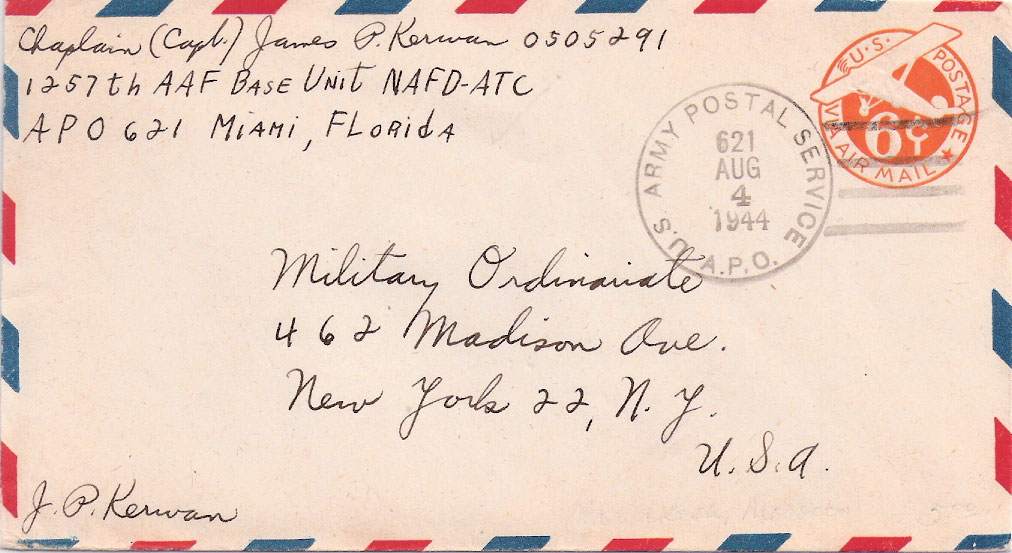 Chaplain (Capt.) James P. Kerwan 0505291
1257th AAF Base Unit NAFD-ATC
APO 621 Miami, Florida
U.S. POSTAGE
6¢
VIA AIR MAIL
U.S. ARMY POSTAL SERVICE
621
AUG
4
1944
A.P.O.
Military Ordinariate
462 Madison Ave.
New York 22, N.Y.
U.S.A.
J. P. Kerwan